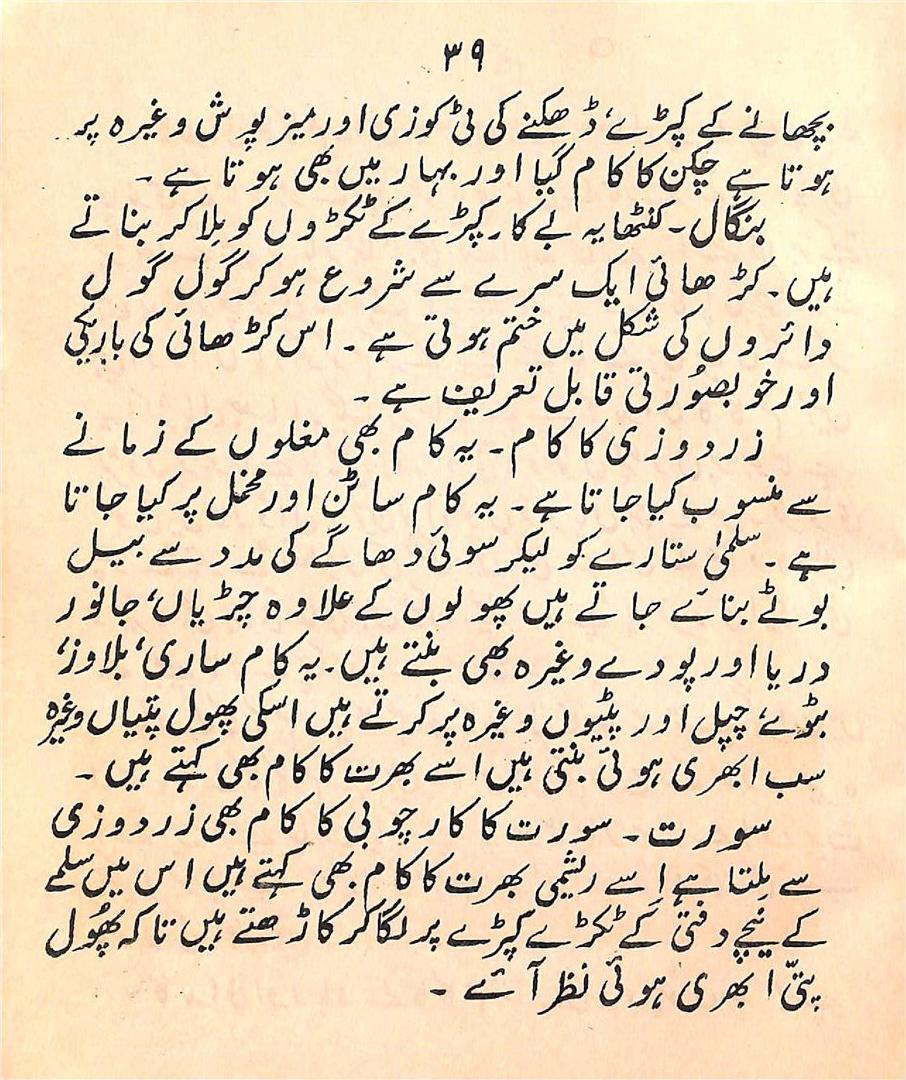 ۳۹
بچھانے کے کپڑے، ڈھکنے کی ٹی کوزی اور میز پوش وغیرہ پر
ہوتا ہے چکن کا کام گیا اور بہار میں بھی ہوتا ہے ۔
بنگال ۔ کنٹھا یہ بے کار کپڑے کے ٹکڑوں کو ملا کر بناتے
ہیں ۔ کڑھائی ایک سرے سے شروع ہو کر گول گول
دائروں کی شکل میں ختم ہوتی ہے ۔ اس کڑھائی کی باریکی
اور خوبصُورتی قابل تعریف ہے ۔
زردوزی کا کام ۔ یہ کام بھی مغلوں کے زمانے
سے منسوب کیا جاتا ہے ۔ یہ کام ساٹن اور مخمل پر کیا جاتا
ہے ۔ سلمیٰ ستارے کو لیکر سوئی دھاگے کی مدد سے بیل
بوٹے بنائے جاتے ہیں پھولوں کے علاوہ چڑیاں، جانور
دریا اور پودے وغیرہ بھی بنتے ہیں ۔ یہ کام ساری، بلاوز،
بٹوے، چپل اور پٹیوں وغیرہ پر کرتے ہیں اسکی پھول پتیاں وغیرہ
سب ابھری ہوئی بنتی ہیں اسے بھرت کا کام بھی کہتے ہیں ۔
سورت ۔ سورت کا کارچوبی کا کام بھی زردوزی
سے مِلتا ہے اِسے ریشمی بھرت کا کام بھی کہتے ہیں اس میں سلمے
کے نیچے دفتی کے ٹکڑے کپڑے پر لگا کر کاڑھتے ہیں تاکہ پھُول
پتّی ابھری ہوئی نظر آئے ۔